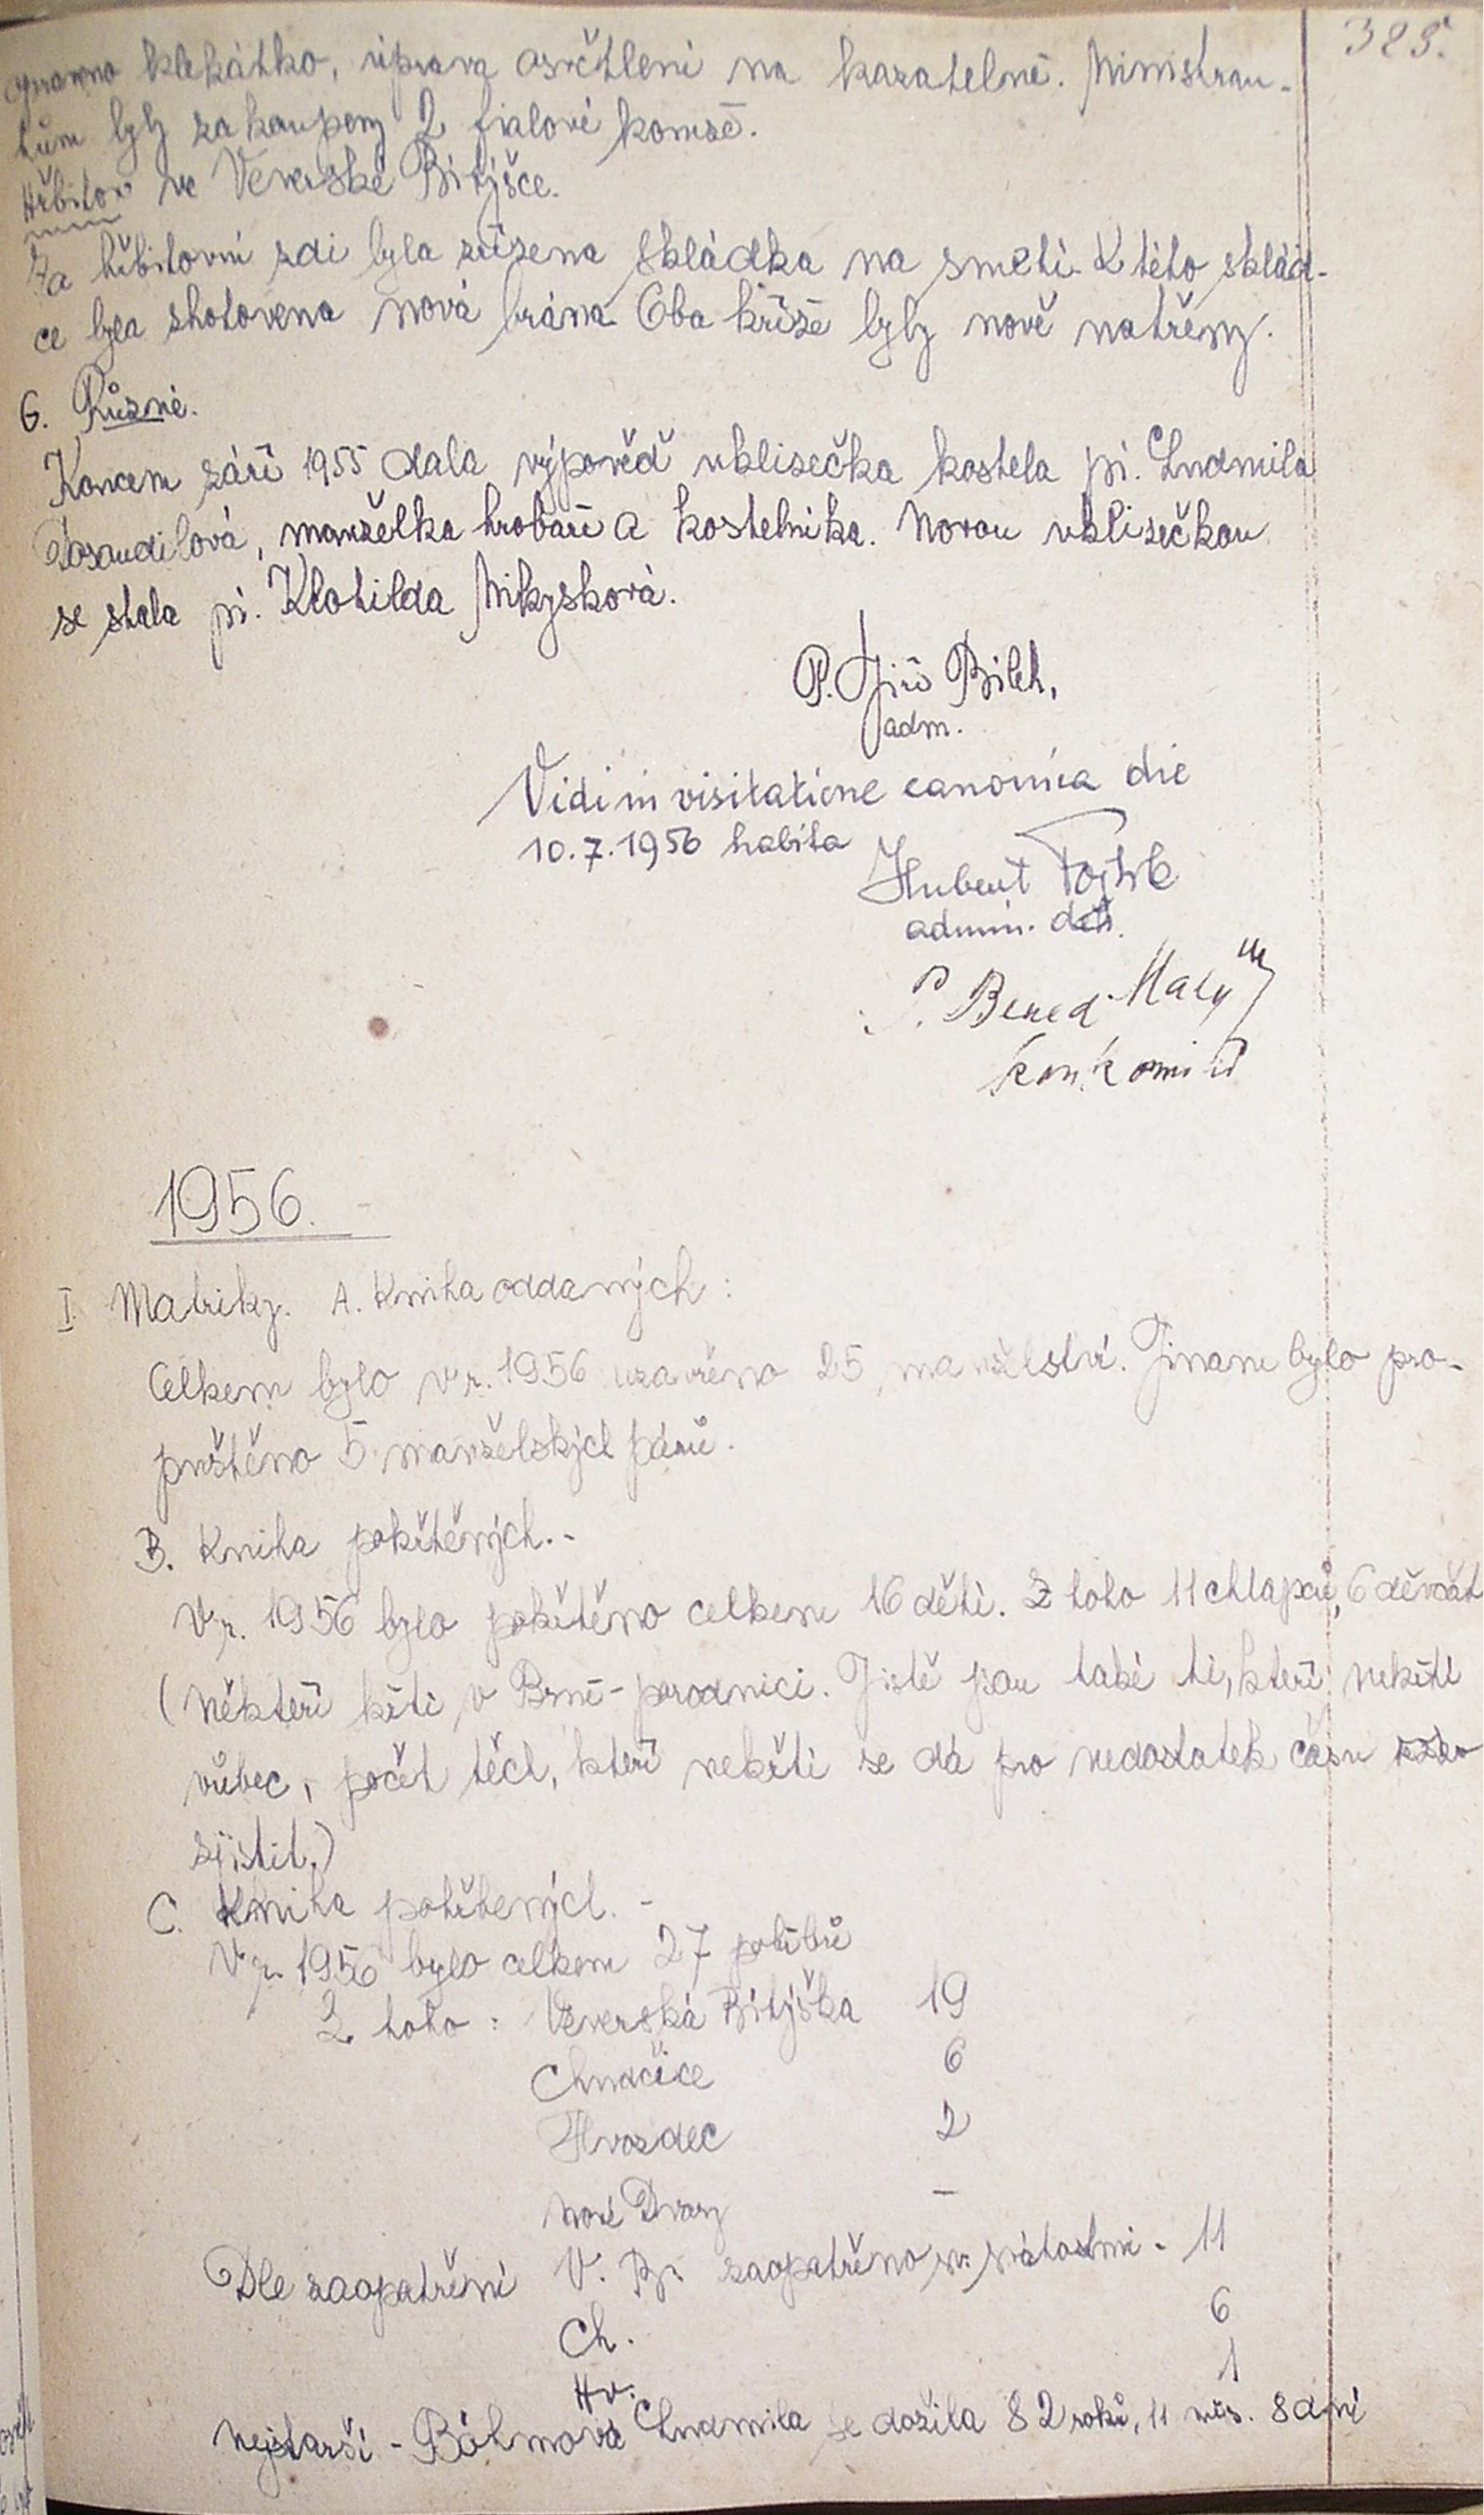 385.
opraveno klekátko, úprava osvětlení na kazatelně. Ministran-
tům byly zakoupeny 2 fialové komže.
Hřbitov ve Veverské Bitýšce.
Za hřbitovní zdí byla zřízena skládka na smetí. K této sklád-
ce byla zhotovena nová brána. Oba kříže byly nově natřeny.
6. Různé.
Koncem září 1955 dala výpověď uklizečka kostela pí. Ludmila
Dosoudilová, manželka hrobaře a kostelníka. Novou uklizečkou
se stala pí. Klotilda Mikysková.
P. Jiří Bílek,
adm.
Vidi in visitatione canonica die
10.7.1956 habita
Hubert
admin. děk.
P. Bened. Malý
1956.
I. Matriky. A. Kniha oddaných:
Celkem bylo v r. 1956 uzavřeno 25 manželství. Jinam bylo pro-
puštěno 5 manželských párů.
B. Kniha pokřtěných.-
V r. 1956 bylo pokřtěno celkem 16 dětí. Z toho 11 chlapců, 6 děvčat
(někteří křtí v Brně-porodnici. Jistě jsou také ti, kteří nekřtí
vůbec, počet těch, kteří nekřtí se dá pro nedostatek času
zjistit.)
C. Kniha pohřbených. -
V r. 1956 bylo celkem 27 pohřbů
Z toho: Veverská Bitýška 19
Chudčice 6
Hvozdec 2
Nové Dvory -
Dle zaopatření V. B. zaopatřeno sv. svátostmi - 11
Ch. 6
Hv. 1
Nejstarší - Böhmová Ludmila se dožila 82 roků, 11 měs. 8 dní